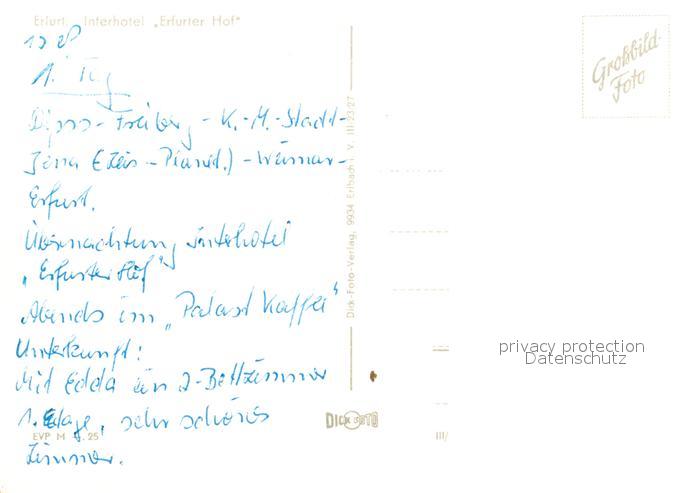 Erfurt, Interhotel „Erfurter Hof"
1. Tag
Dipps-Freiberg-K.-M.-Stadt-
Jena (Zeis-Planet.)-Weimar-
Erfurt.
Übernachtung Interhotel
„Erfurter Hof"
Abends im „Palast Kaffee"
Unterkunft:
Mit Edda ein 2-Bettzimmer
1. Etage, sehr schönes
Zimmer.
EVP M 25
Dick-Foto-Verlag, 9934 Erlbach i. V. III/23/27
DICK FOTO
III/
Großbild-
Foto
privacy protection
Datenschutz